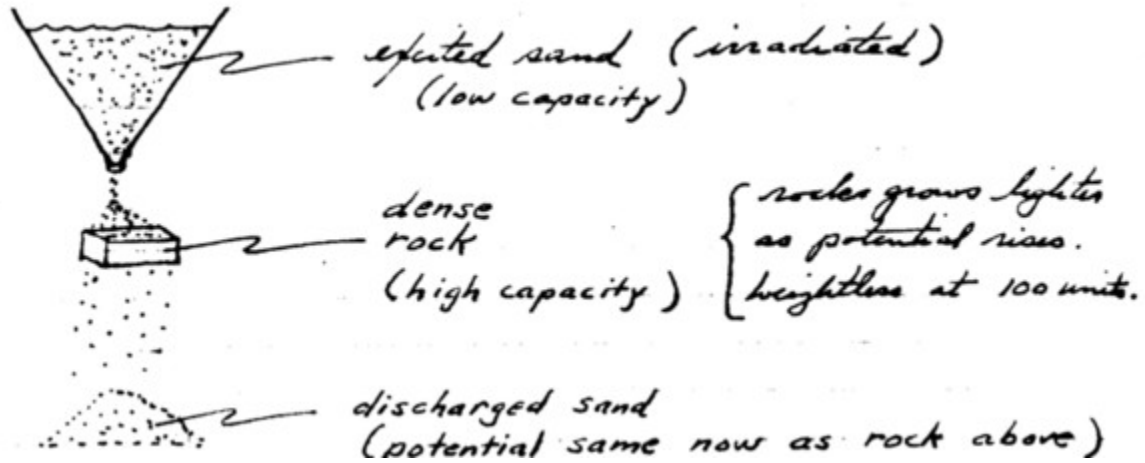 excited sand (irradiated)
(low capacity)
dense
rock
(high capacity)
rocks grows lighter
as potential rises.
weightless at 100 units.
discharged sand
(potential same now as rock above)